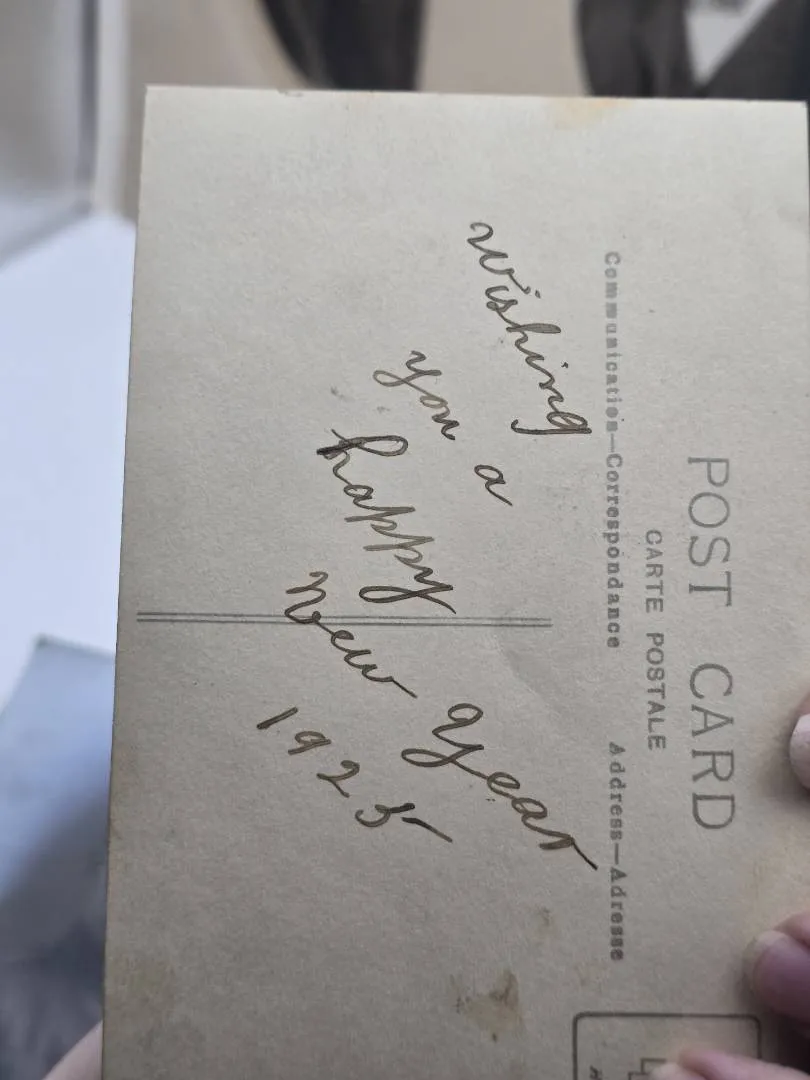 POST CARD
CARTE POSTALE
Communication—Correspondance
Address—Adresse
Wishing
you a
happy
New Year
1925